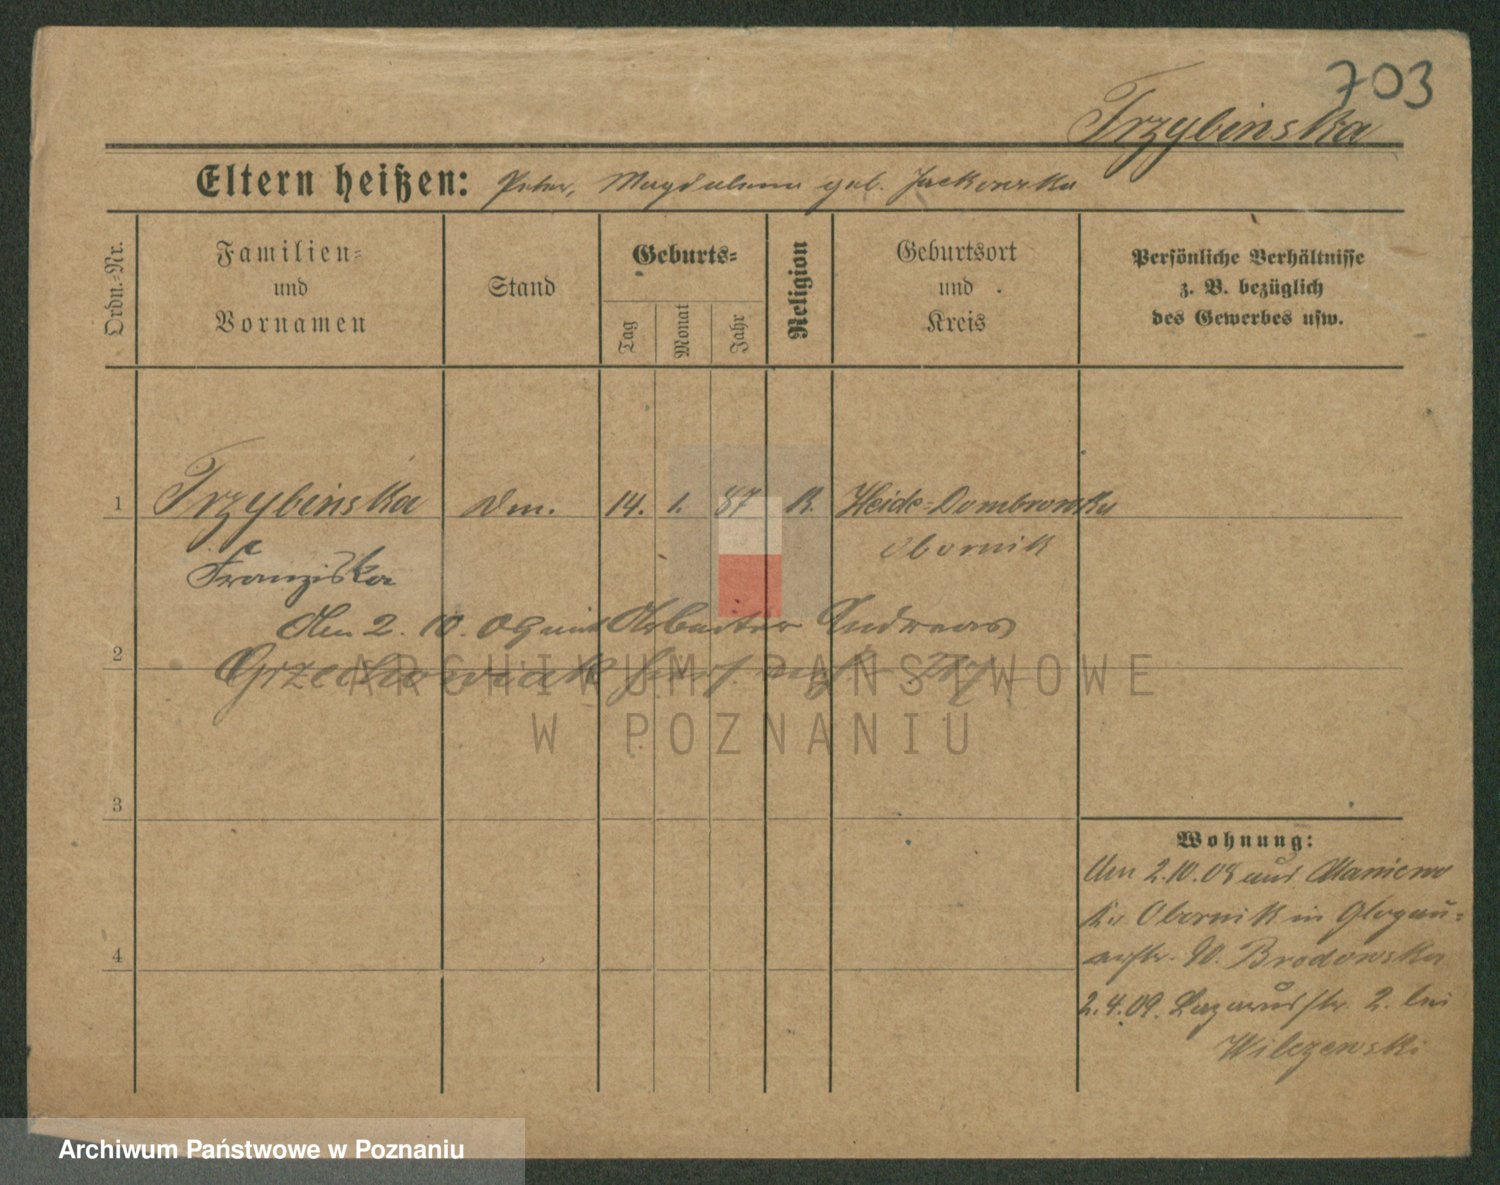 703
Trzybinska
Eltern heißen: Peter, Magdalena geb. Jackowska
Ordn.-Nr.
Familien-
und
Vornamen
Stand
Geburts-
Tag
Monat
Jahr
Religion
Geburtsort
und
Kreis
Persönliche Verhältnisse
z. B. bezüglich
des Gewerbes usw.
1 Trzybinska 14. 1. 87 K. Heide-Dombrowka
Obornik
Franziska
Am 2. 10. 09 mit Arbeiter Andreas
2 Grzechowiak
3
4
Wohnung:
Am 2.10.08 aus Maniewo
Kr. Obornik in Glogau-
erstr. Brodowska
2.4.09. Lazarusstr. 2. bei
Wilczewski
ARCHIWUM PAŃSTWOWE
W POZNANIU
Archiwum Państwowe w Poznaniu